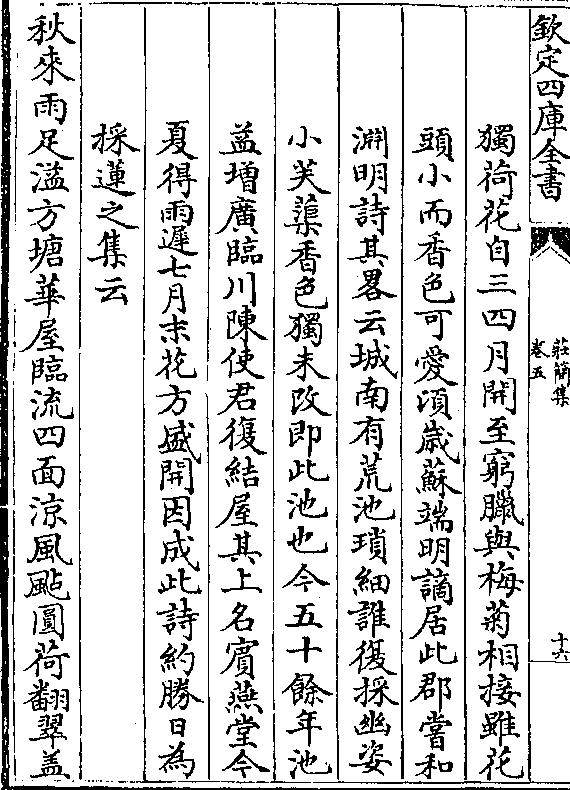 欽定四庫全書
莊簡集
卷五
十六
獨荷花自三四月開至窮臘與梅菊相接雖花
頭小而香色可愛頃歲蘇端明謫居此郡嘗和
淵明詩其畧云城南有荒池瑣細誰復採幽姿
小芙蕖香色獨未改即此池也今五十餘年池
益增廣臨川陳使君復結屋其上名賓燕堂今
夏得雨遲七月末花方盛開因成此詩約勝日為
採蓮之集云
秋來雨足溢方塘華屋臨流四面涼風颭圓荷翻翠盖